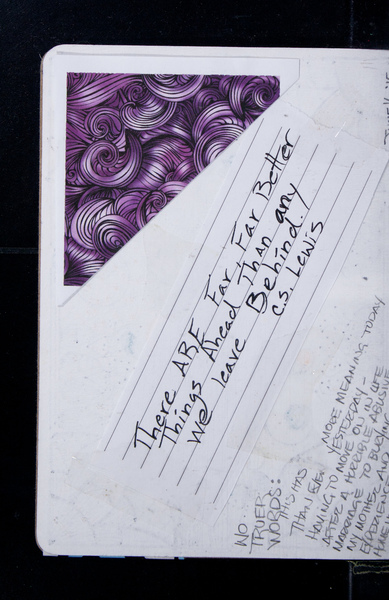 There ARE Far, Far Better
Things Ahead Than any
We leave Behind!
C.S. Lewis
NO
TRUER
WORDS:
THIS HAS
MORE MEANING TODAY
THAN EVER YESTERDAY-
HAVING TO MOVE ON IN
AFTER A HORRIBLE
MARRIAGE TO
MY MOTHER
AND